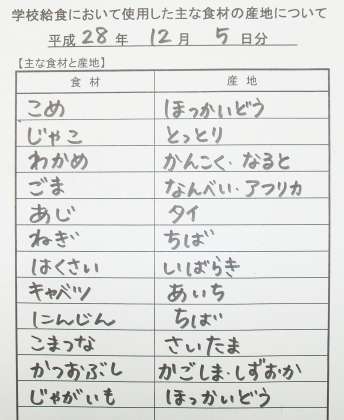 学校給食において使用した主な食材の産地について
平成 28 年 12 月 5 日分
【主な食材と産地】
食材 産地
こめ ほっかいどう
じゃこ とっとり
わかめ かんこく・なると
ごま なんべい・アフリカ
あじ タイ
ねぎ ちば
はくさい いばらき
キャベツ あいち
にんじん ちば
こまつな さいたま
かつおぶし かごしま・しずおか
じゃがいも ほっかいどう